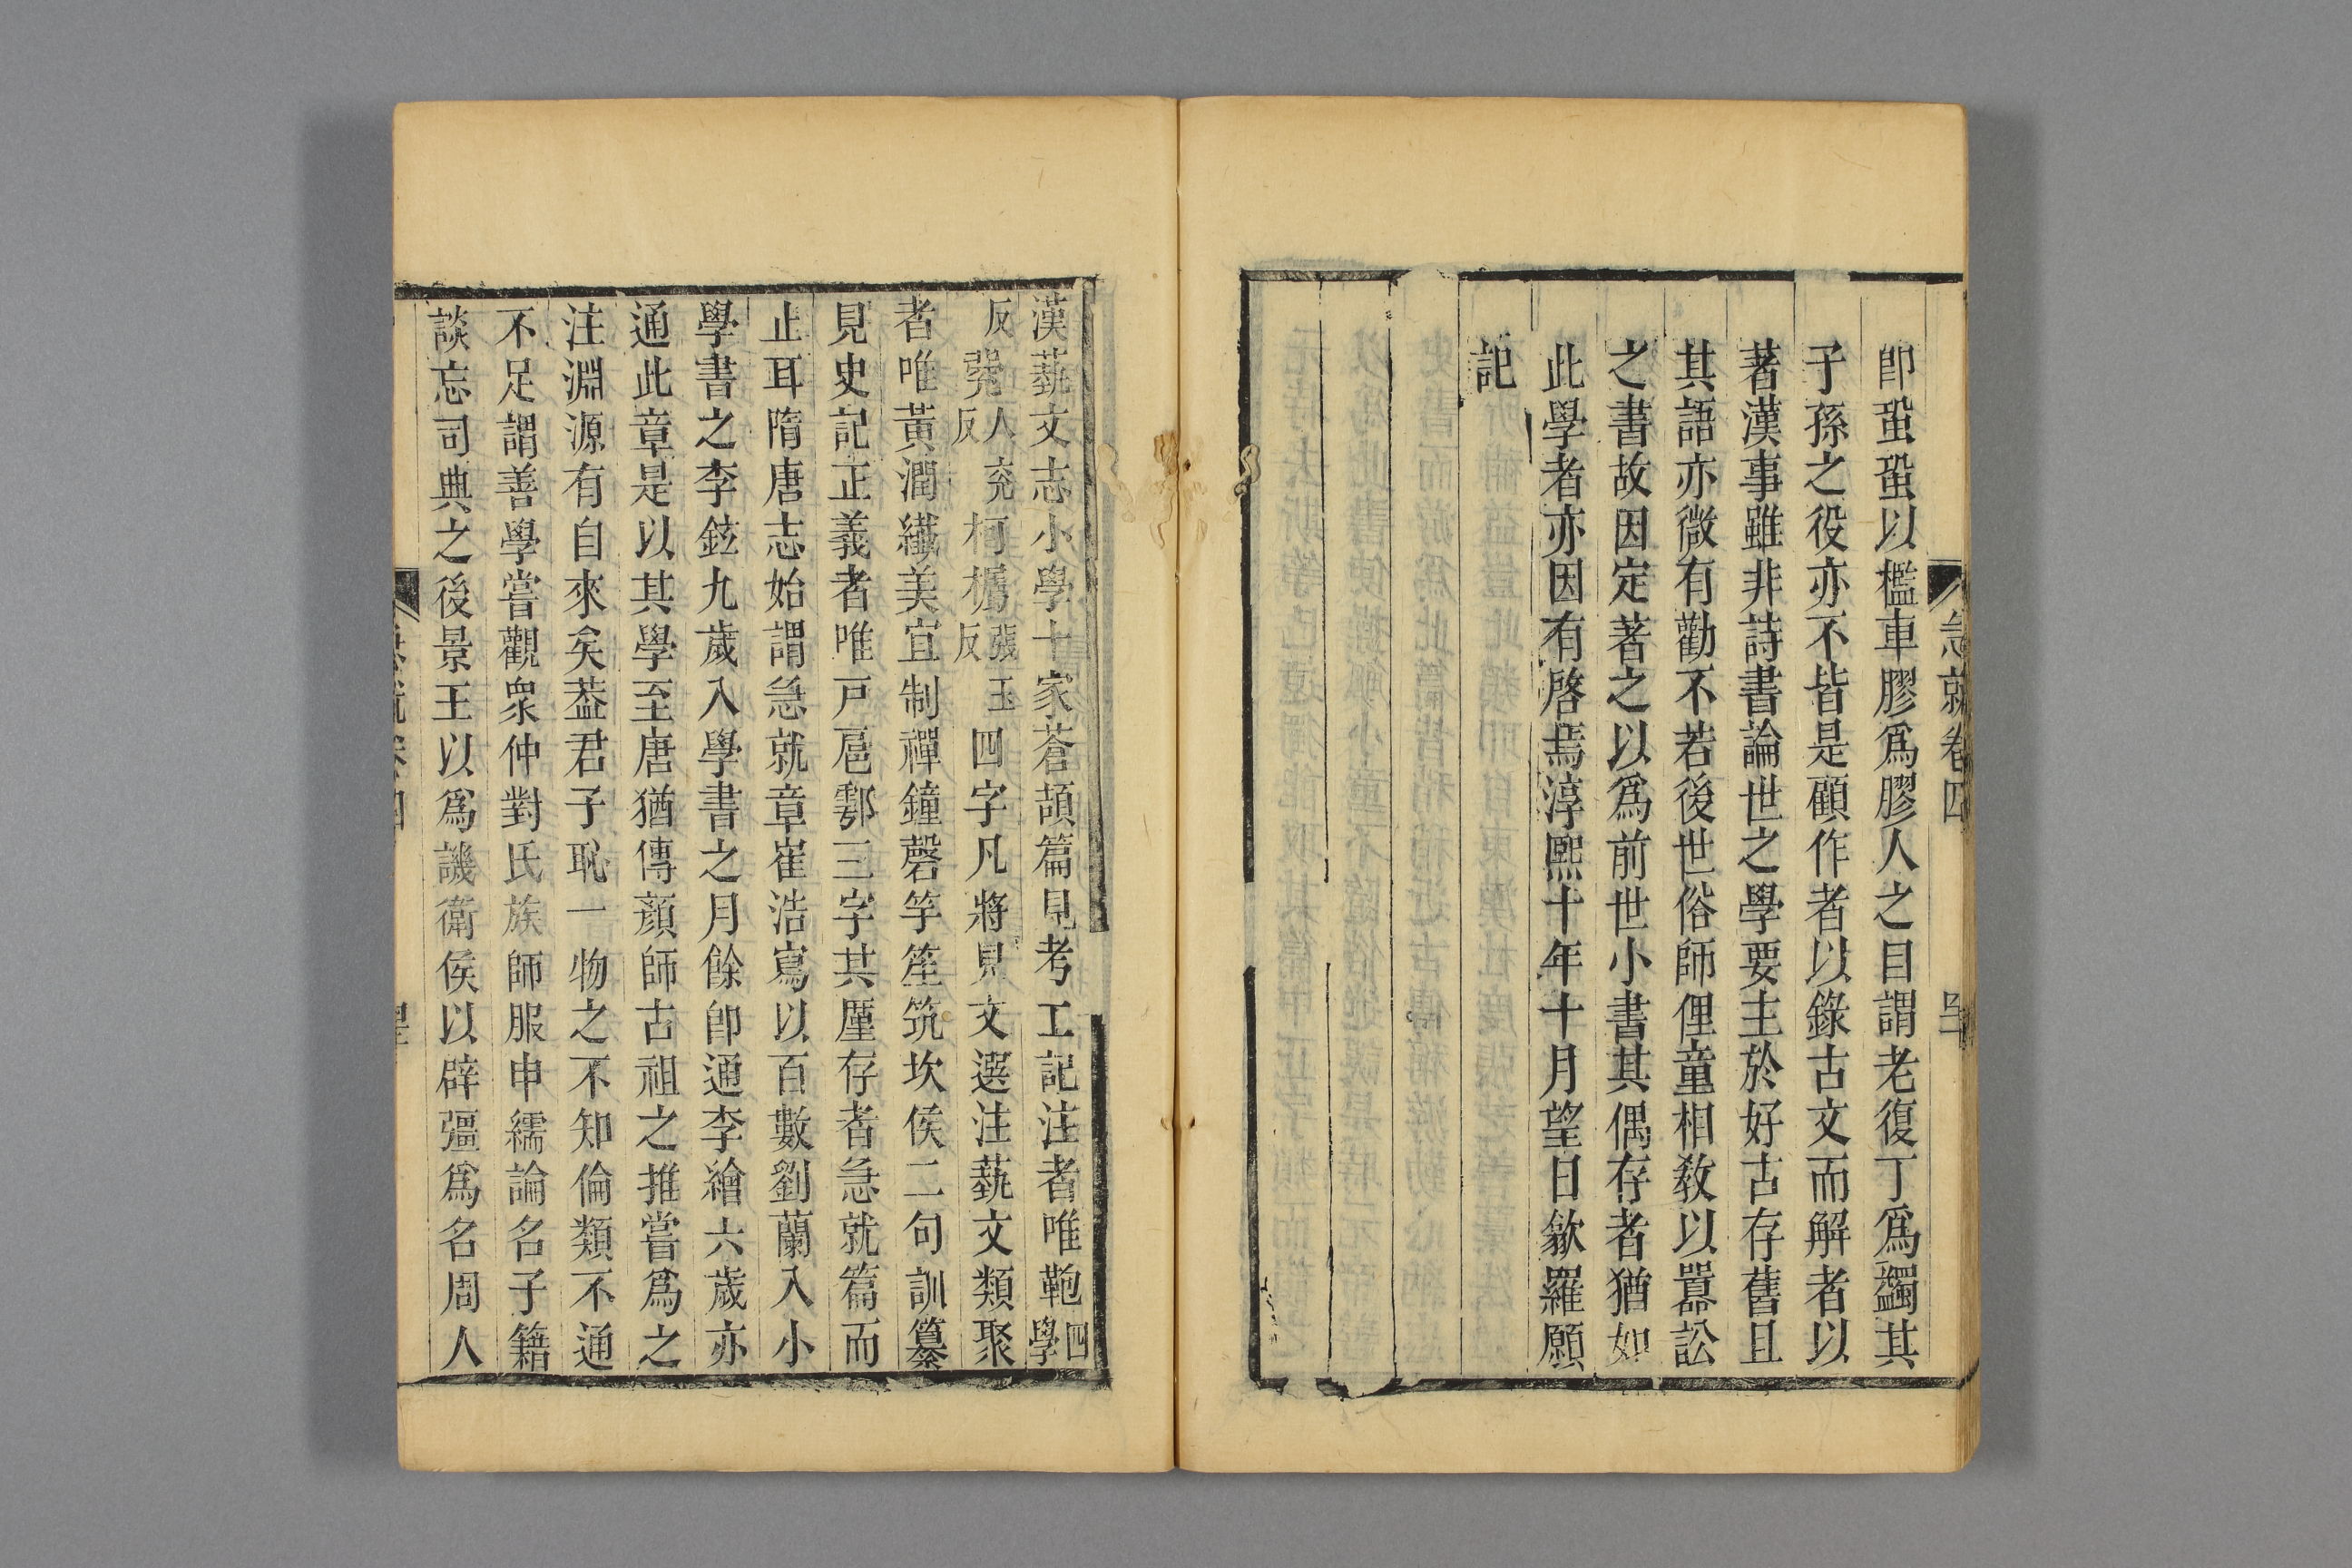 急就卷四
卽蛩蛩以檻車膠爲膠人之目謂老復丁爲蠲其
子孫之役亦不皆是顧作者以錄古文而解者以
著漢事雖非詩書論世之學要主於好古存舊且
其語亦微有勸不若後世俗師俚童相敎以嚚訟
之書故因定著之以爲前世小書其偶存者猶如
此學者亦因有啓焉淳熙十年十月望日歙羅願
記
漢蓺文志小學十家蒼頡篇見考工記注者唯鞄四學
反㼱人兖反柯欘張玉反四字凡將見文選注蓺文類聚
者唯黃潤纖美宜制襌鐘磬竽笙筑坎侯二句訓纂
見史記正義者唯戸扈鄠三字其厪存者急就篇而
止耳隋唐志始謂急就章崔浩寫以百數劉蘭入小
學書之李鉉九歲入學書之月餘卽通李繪六歲亦
通此章是以其學至唐猶傳顏師古祖之推嘗爲之
注淵源有自來矣葢君子恥一物之不知倫類不通
不足謂善學嘗觀衆仲對氏族師服申繻論名子籍
談忘司典之後景王以爲譏衛侯以辟彊爲名周人